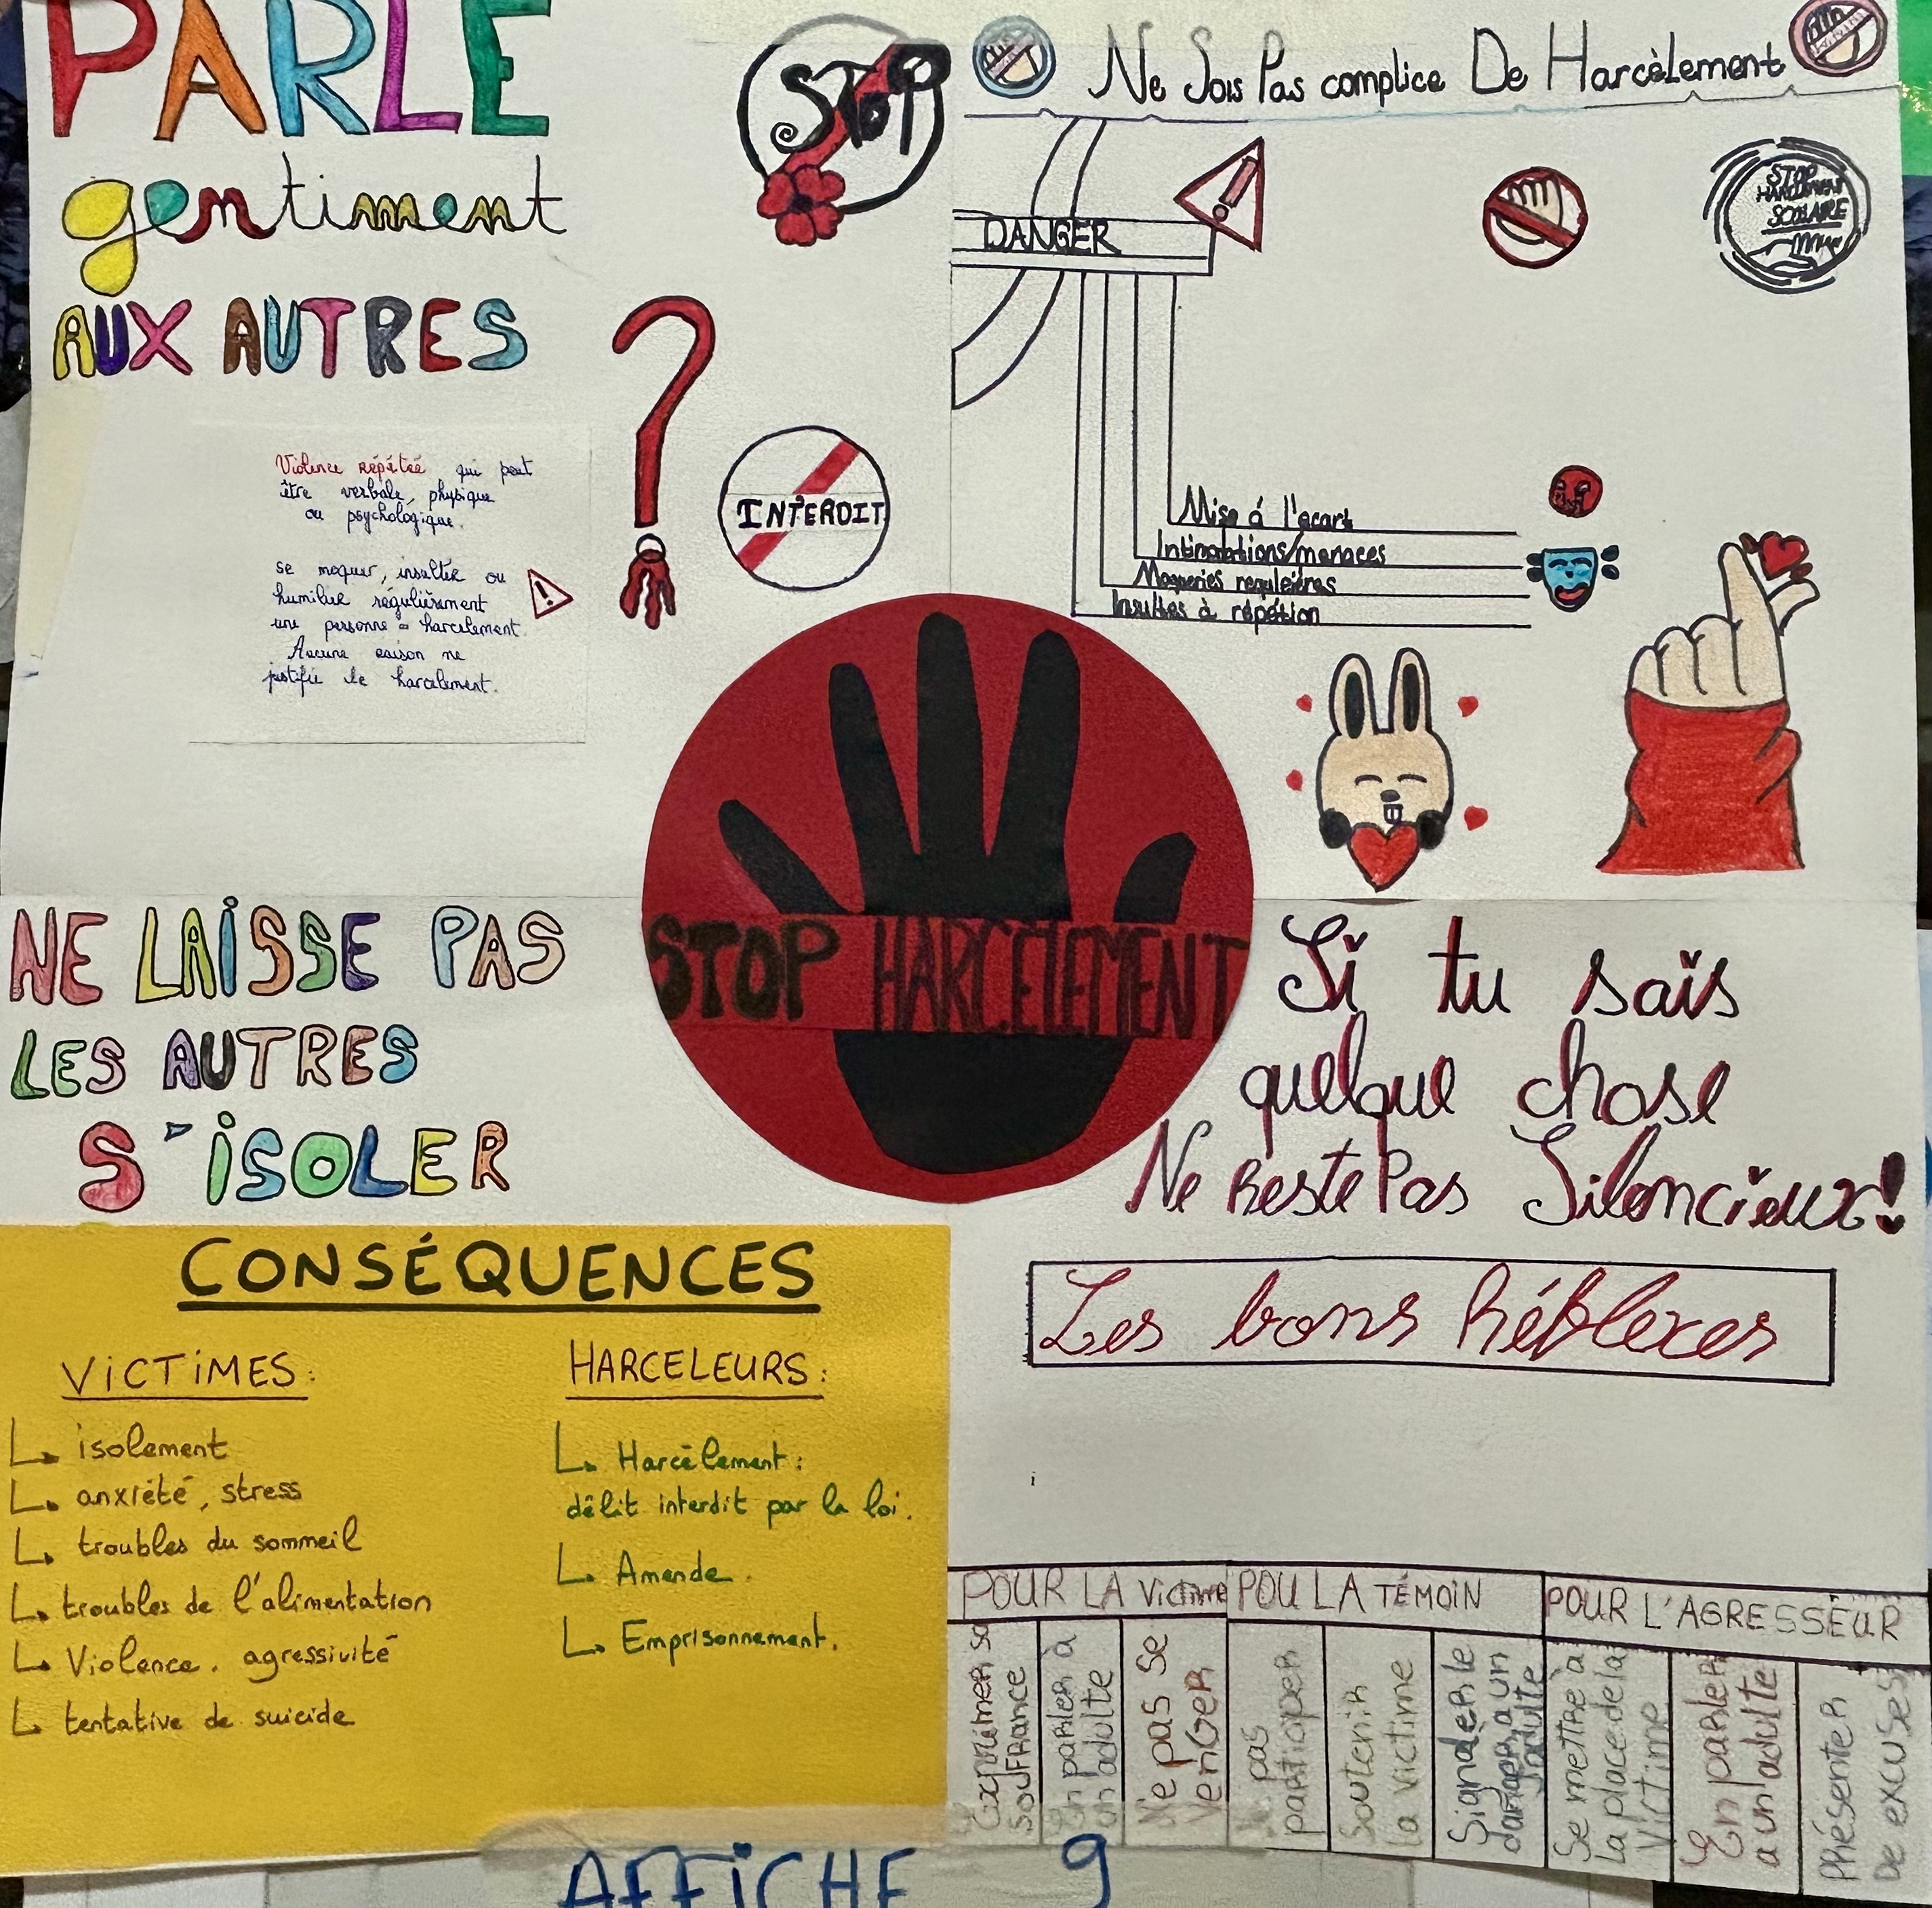 PARLE
gentiment
AUX AUTRES
STOP
Ne Sois Pas complice De Harcèlement
DANGER
STOP
HARCELEMENT
SCOLAIRE
Violence répétée qui peut
être verbale, physique
ou psychologique.
se moquer, insulter ou
humilier régulièrement
une personne = harcelement.
Aucune raison ne
justifie le harcelement.
INTERDIT
Mise á l'ecart
Intimidations/menaces
Moqueries reguleières
Insultes à répétion
STOP HARCELEMENT
NE LAISSE PAS
LES AUTRES
S'ISOLER
Si tu sais
quelque chose
Ne Reste Pas Silencieux!
CONSÉQUENCES
VICTIMES:
isolement
anxiété, stress
troubles du sommeil
troubles de l'alimentation
Violence, agressivité
tentative de suicide
HARCELEURS:
Harcèlement:
délit interdit par la loi.
Amende.
Emprisonnement.
Les bons Réflexes
POUR LA Victime
Exprimer sa
souffrance
En parler à
un adulte
Ne pas se
venger
POU LA TÉMOIN
pas
participer
Soutenir
la victime
Signaler le
danger a un
adulte
POUR L'AGRESSEUR
Se mettre à
la place de la
Victime
En parler
a un adulte
Présenter
De excuses
AFFICHE 9